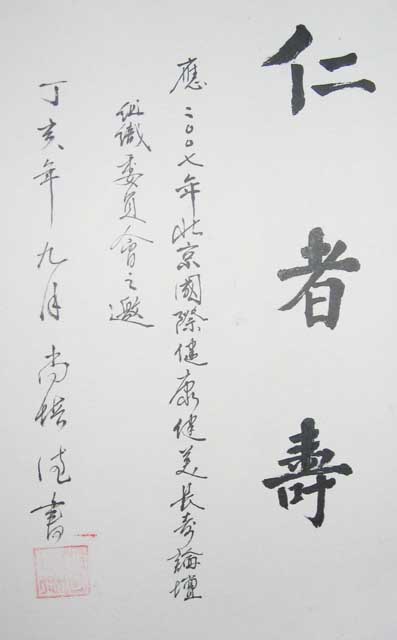 仁者壽
應二〇〇七年北京國際健康健美長壽論壇
組織委員會之邀
丁亥年九月尚培德書